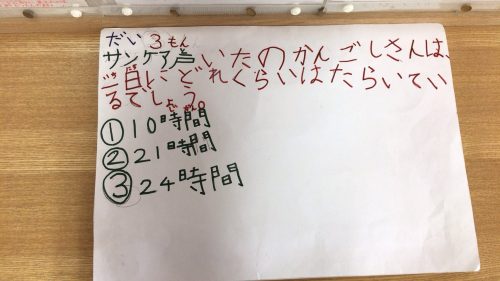 だい3もん
サンケア声いたのかんごしさんは、
一日にどれくらいはたらいてい
るでしょう。
①10時間
②21時間
③24時間